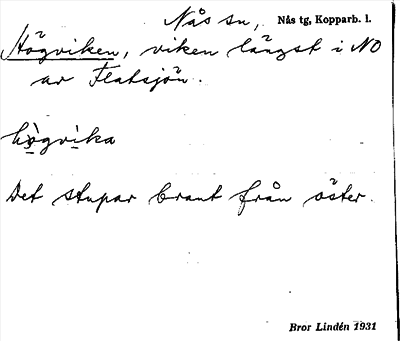 Nås sn, Nås tg, Kopparb. l.
Högviken, viken längst i NO
av Flatsjön.
hògvìka
Det stupar brant från öster.
Bror Lindén 1931